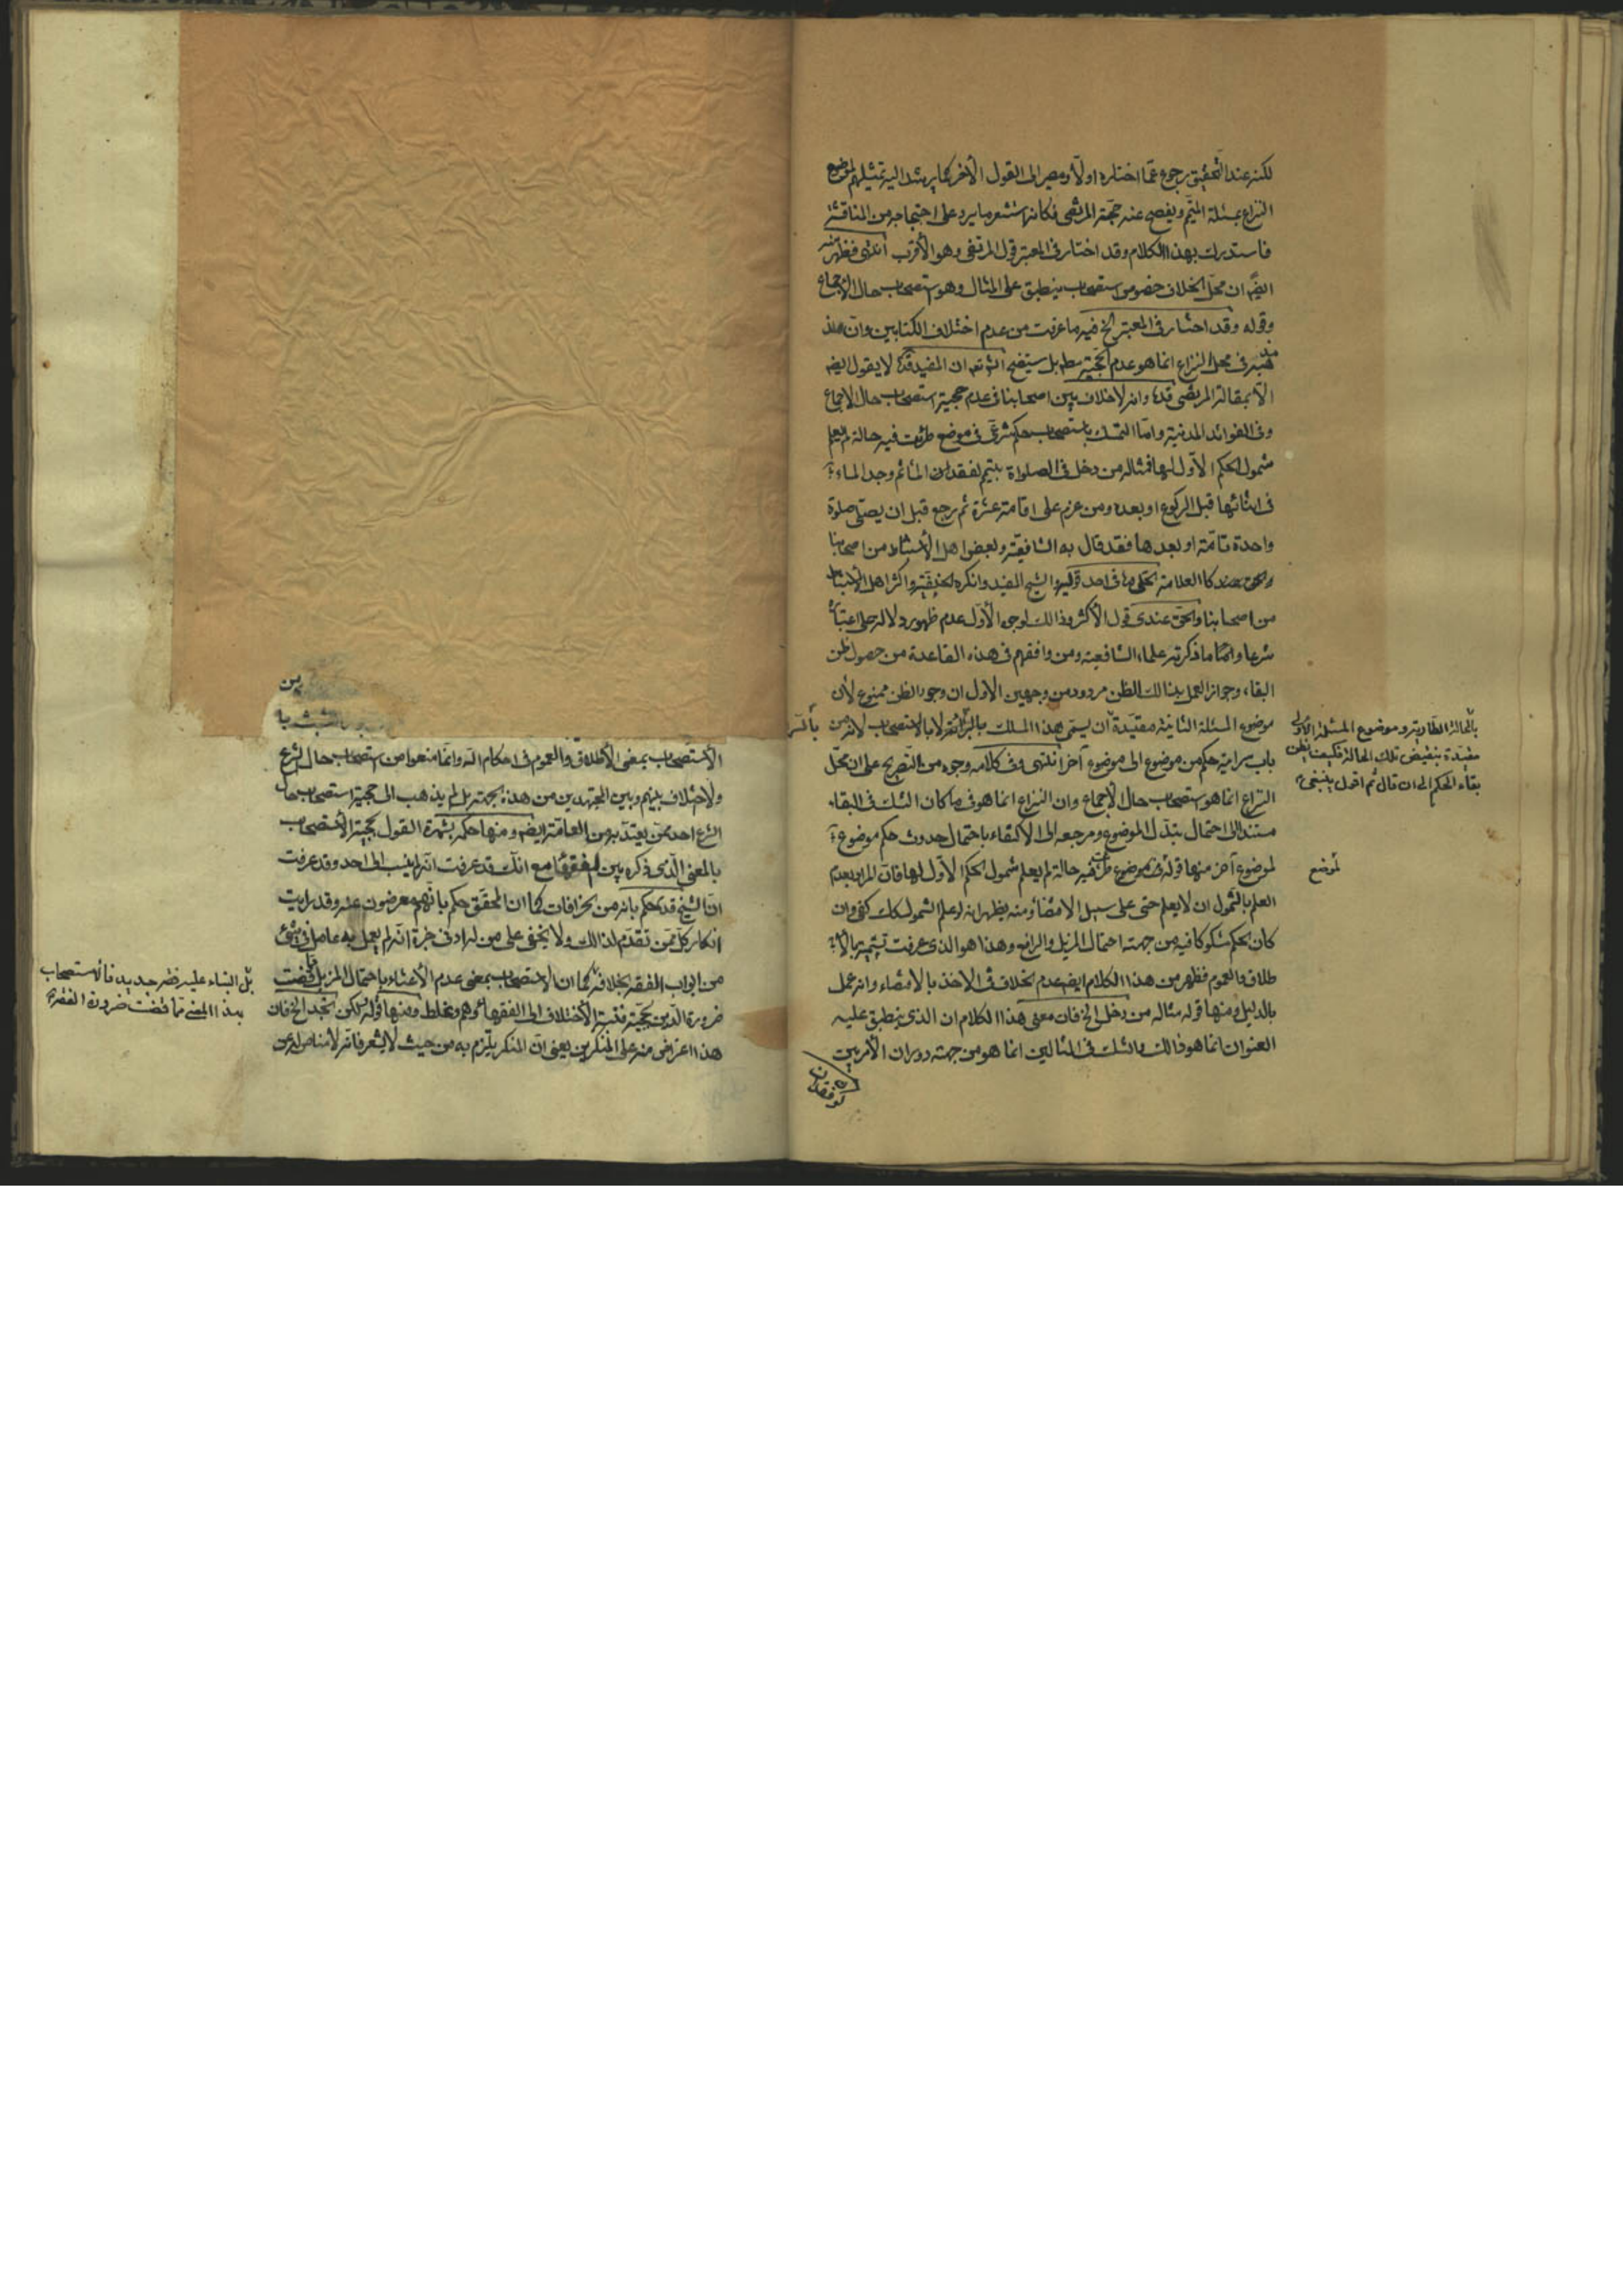 لكنه عند التحقيق رجوع عمّا اختاره اولًا ومصير الى القول الأخر كما يرشد اليه تمثيلهم لموضع
النزاع بمسئلة المتيمّم ويفصح عنه حجّة المرتضى فكانه استشعر ما يرد على احتجاجه من المناقشة
فاستدرك بهذا الكلام وقد اختار فى المعتبر قول المرتضى وهو الأقرب انتهى فظهر منه
ايضًا ان محلّ الخلاف خصوص استصحاب ينطبق على المثال وهو استصحاب حال الاجماع
وقوله وقد اختار فى المعتبر الخ فيه ما عرفت من عدم اختلاف الكتابين وان
مذهبه فى محل النزاع انما هو عدم الحجّية مطـ بل ستيضح انشـ تعـ ان المفيد قدّه لا يقول ايضـ
الّا بمقالة المرتضى قدّه وانه لاخلاف بين اصحابنا فى عدم حجية استصحاب حال الاجماع
وفى الفوائد المدنية وامّا التمسّك باستصحاب حكم شرعىّ فى موضع طرئت فيه حالة لم يعلم
شمول الحكم الأوّل لها فمثاله من دخل فى الصلواة بتيمّم لفقدان الماء ثم وجد الماء
فى اثنائها قبل الركوع او بعده ومن عزم على اقامة عشرة ثم رجع قبل ان يصلّى صلوة
واحدة تامّة او بعدها فقد قال به الشافعيّة وبعض اهل الأستنباط من اصحابنا
كالعلامة الحلّى ره فى احد قوليه والشيخ المفيد وانكره الحنفيّة واكثر اهل الاستنباط
من اصحابنا والحقّ عندى قول الأكثر وذالك لوجوه الأوّل عدم ظهور دلالة على اعتباره
شرعا وامّا ما ذكرته علماء الشافعية ومن وافقهم فى هذه القاعدة من حصول ظن
البقاء وجواز العمل بذالك الظن مردود من وجهين الأول ان وجود الظن ممنوع لأن
موضوع المسئلة الثانية مقيّدة ان يسمّى هذا المسلك بالسرائة لا بالاستصحاب لانه من
باب سراية حكم من موضوع الى موضوع آخر انتهى وفى كلامه وجوه من التصريح على ان محلّ
النزاع انما هو استصحاب حال الأجماع وان النزاع انما هو فى ما كان الشك فى البقاء
مستندا الى احتمال تبدّل الموضوع ومرجعه الى الأكتفاء باحتمال حدوث حكم موضوع
لموضوع آخر منها قوله فى موضوع طرئت فيه حالة لم يعلم شمول الحكم الأول لها فان المراد بعدم
العلم بالشمول ان لا يعلم حتى على سبيل الاقتضاء ومنه يظهر انه لو علم الشمول كك كفى وان
كان الحكم مشكوكا فيه من جهة احتمال المزيل والرافع وهذا هو الذى عرفت تسميته بالأ
طلاق والعموم فظهر من هذا الكلام ايضـ عدم الخلاف فى الاخذ بالاقتضاء وانه عمل
بالدليل ومنها قوله مثاله من دخل الخ فان معنى هذا الكلام ان الذى ينطبق عليه
العنوان انما هو ذالك والشك فى المثالين انما هو من جهة دوران الأمر بين
بالحالة الطارية وموضوع المسئلة الأولى
مقيّدة بنقيض تلك الحالة فكيف يظن
بقاء الحكم الى ان قال ثم اقول ينبغى
لموضع
ين
الأستصحاب بمعنى الأطلاق والعموم فى احكام الله وانما منعوا من استصحاب حال الشرع
ولاختلاف بينهم وبين المجتهدين من هذه الجهة بل لم يذهب الى حجية استصحاب حال
الشرع احد ممّن يعتدّ به من العامّة ايضـ ومنها حكمه بشهرة القول بحجية الأستصحاب
بالمعنى الّذى ذكره بين الفقهاء مع انك قد عرفت انه لم ينسب الى احد وقد عرفت
انّ الشيخ قدّه حكم بانه من الخرافات كما ان المحقّق حكم بانّهم معرضون عنه وقد رايت
انكار كلّ ممّن تقدّم لذالك ولا يخفى على من له ادنى خبرة انّه لم يعمل به عامل فى شئ
من ابواب الفقه بخلافه كما ان الاستصحاب بمعنى عدم الأعتناء باحتمال المزيل قضت
ضرورة الدّين بحجيّته فنسبة الأختلاف الى الفقهاء وهم وغلط ومنها قوله لكن تجد الخ فان
هذا اعتراض منه على المنكرين يعنى انّ المنكر يلتزم به من حيث لا يشعر فانّه لامناص له عن
بل البناء عليه فقه جديد فالاستصحاب
بهذا المعنى ممّا قضت ضرورة الفقه